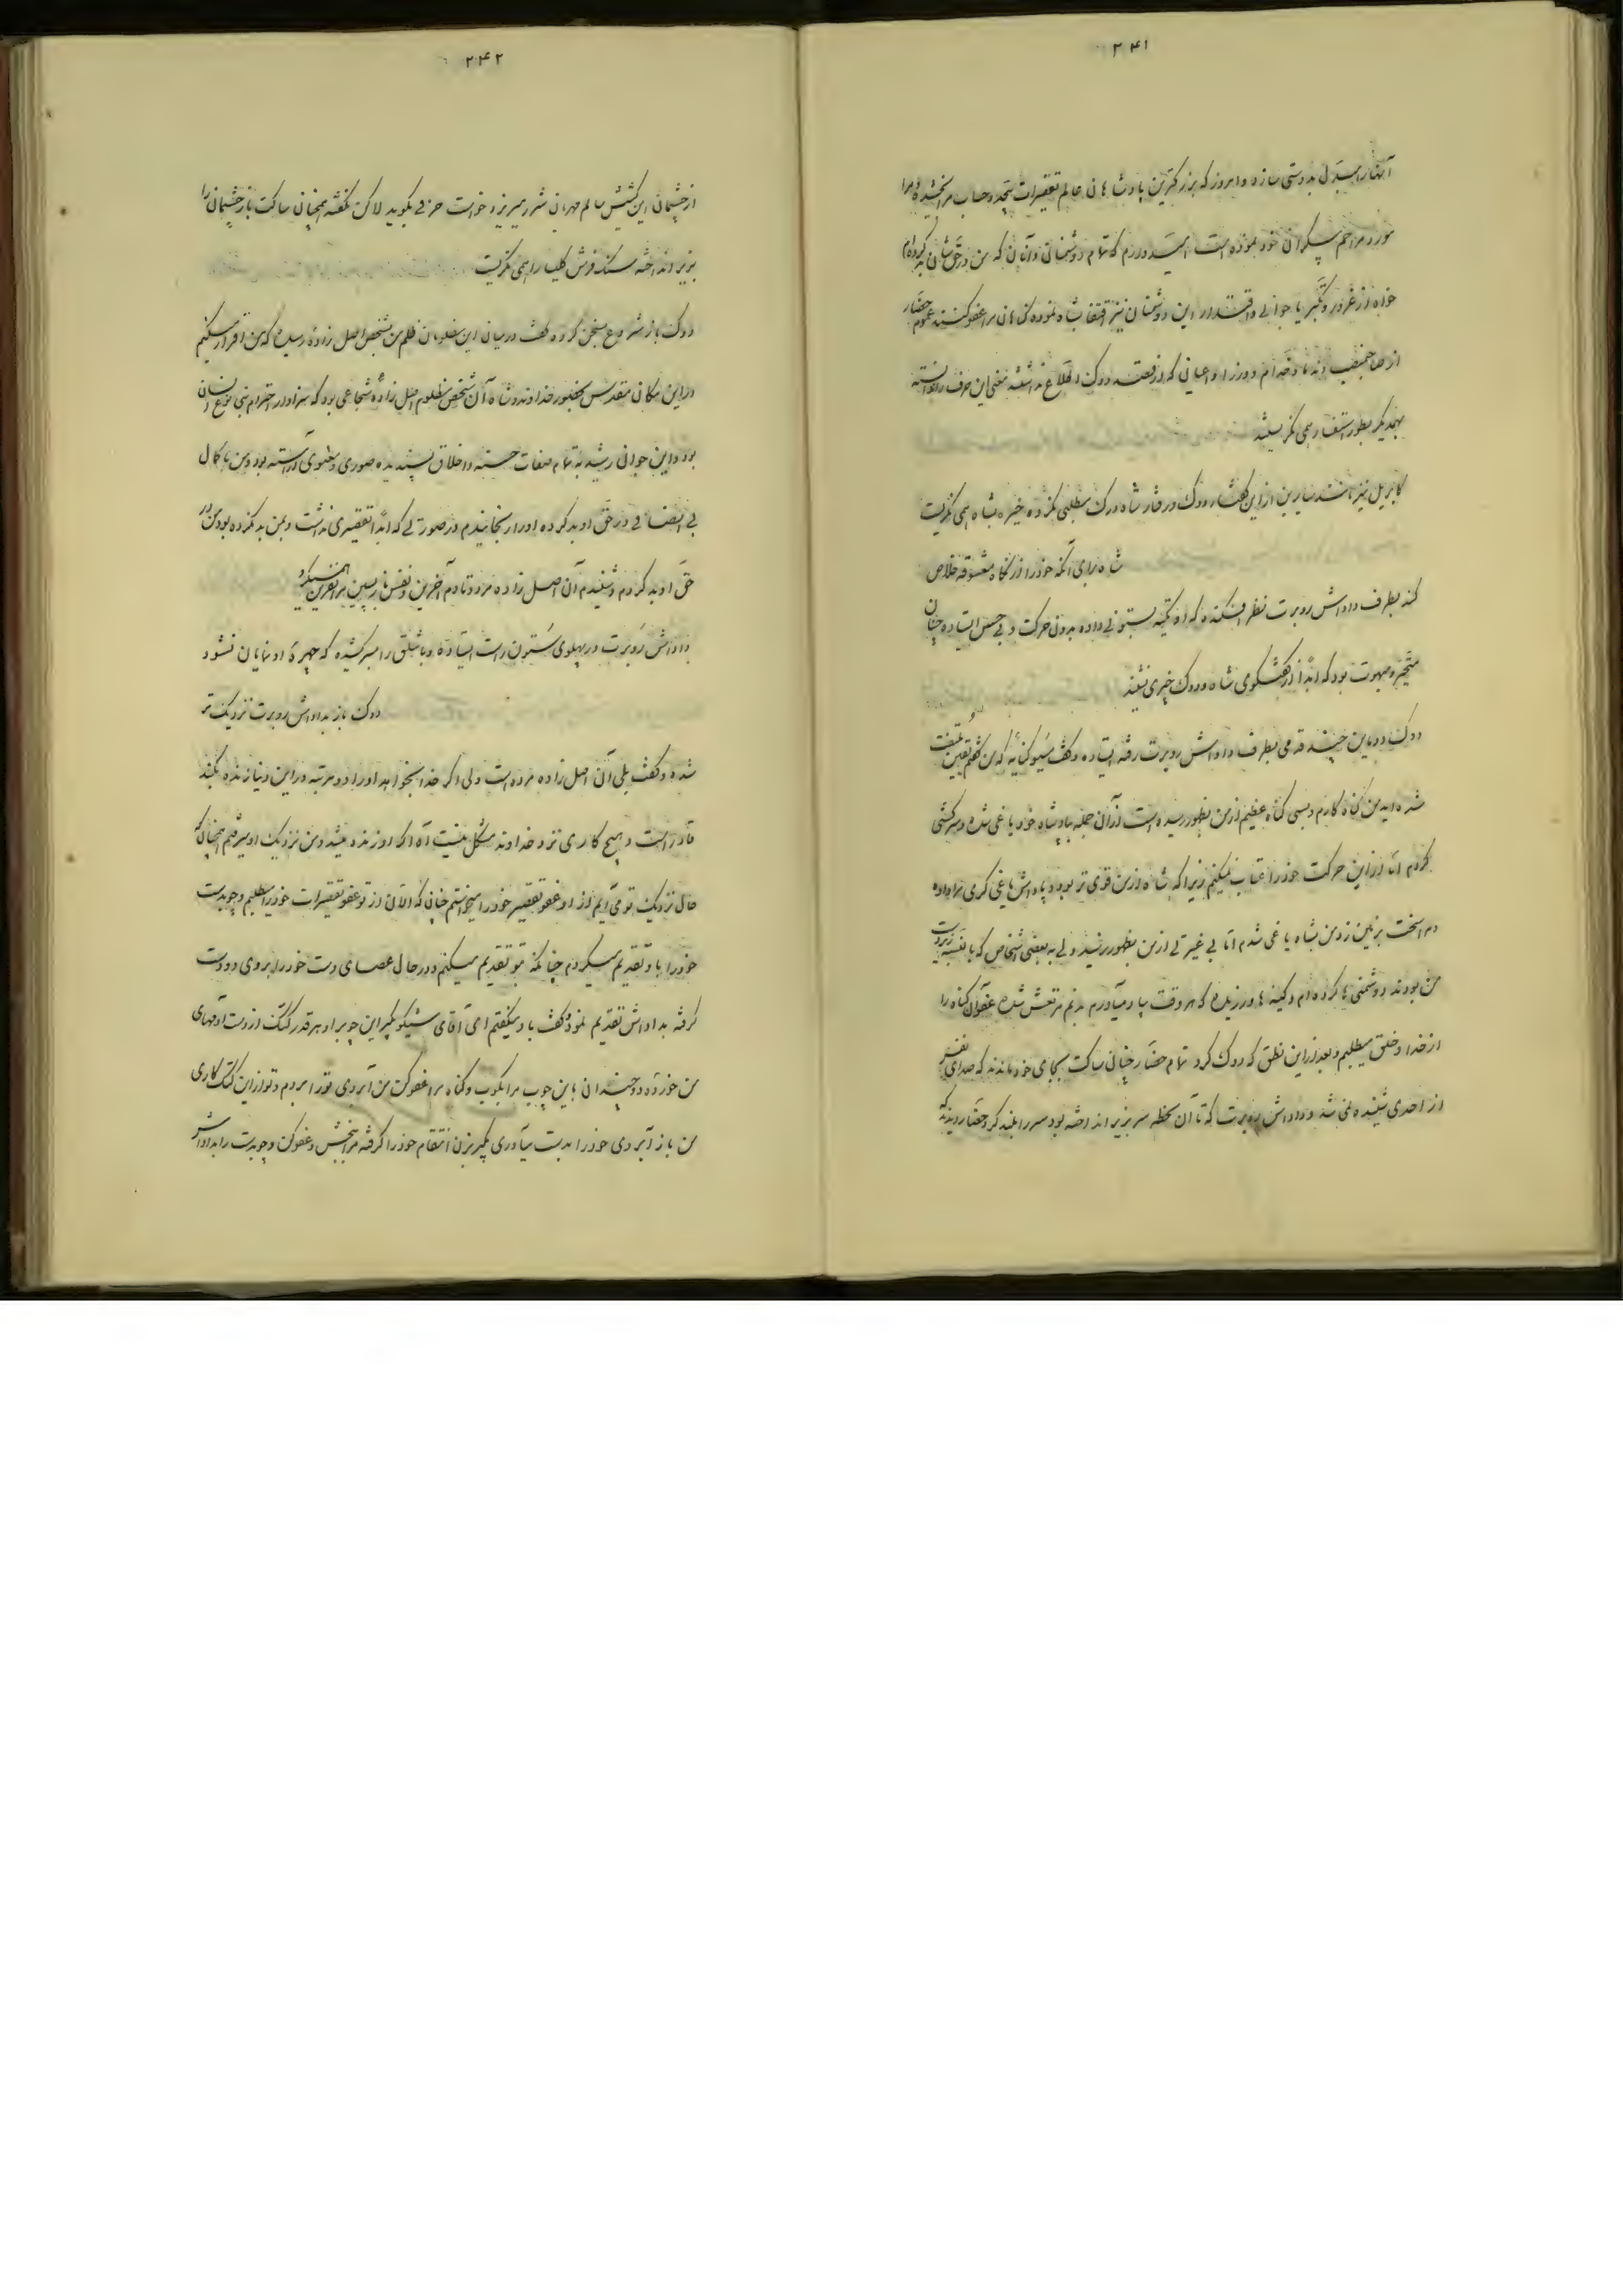 ۲۴۱
آنها را مبدل بدوستی سازد و امروز که بزرکترین پادشاهان عالم تقصیرات بیحد و حساب مرا بخشیده و مرا
مورد مراحم بیکران خود نموده است امیدوارم که تمام دوشمنانی و آنان که من در حق شان بد کرده‌ام
خواه از غرور و تکبر یا جوانی و اقتدار این دوشمنان نیز اقتفا بشاه نموده کناهان مرا عفو کنند عموم حضار
از صاحبمنصب و ندما و خدام و وزرا و اعیانی که از قصد دوک اطلاع نداشتند معنی این حرف را ندانسته
بهمدیکر بطور استفسار همی نکریستند
کابریل نیز مانند سایرین از این کفتار دوک و رفتار شاه درک مطلبی نکرده خیره بشاه همی نکریست
شاه برای آنکه خود را از نکاه معشوقه خلاص
کند بطرف داداش روبرت نظر افکند که او تکیه بستونی داده بدون حرکت و بی حس ایستاده چنان
متحیر و مبهوت بود که ابداً از کفتکوی شاه و دوک چیزی نشنید
دوک دو باین چند قدمی بطرف داداش روبرت رفته ایستاده و کفت
شده‌اید من کناه کارم و بسی کناه عظیم از من بظهور رسیده است از آن جمله بپادشاه خود یاغی شده و سرکشی
کردم اما از این حرکت خود را عتاب نمیکنم زیرا که شاه از من قوی تر بود و پاداش یاغی کری مرا داده
مرا سخت بر زمین زد من بشاه یاغی شدم اما بی غیرتی از من بظهور نرسید ولی به بعضی اشخاص که با
من بودند دوشمنی‌ها کرده‌ام و کینه‌ها ورزیده که هر وقت بیاد میآورم بدنم مرتعش شده عفو آن کناه را
از خدا و خلق میطلبم و بعد از این نطق که دوک کرد تمام حضار چنان ساکت بجای خود ماندند که صدای نفس
از احدی شنیده نمی شد و داداش روبرت که تا آن لحظه سر بزیر انداخته بود سر را بلند کرد حضار دیدند که
۲۴۲
از چشمان این کشیش سالم مهربان شرر میریزد خواست حرفی بکوید لاکن نکفته همچنان ساکت باز چشمان را
بزیر انداخته سنک فرش کلیسا را همی نکریست
دوک باز شروع بسخن کرده کفت در میان این مظلومان ظلم من بشخص اصل زاده رسیده که من اقرار میکنم
در این مکان مقدس بحضور خداوند و شاه آن شخص مظلوم اصل زاده شجاعی بود که سزاوار احترام بنی نوع انسان
بود و این جوان رشید بتمام صفات حسنه و اخلاق پسندیده صوری و معنوی آراسته بود و من با کمال
بی انصافی در حق او بد کرده او را رنجانیدم در صورتی که ابداً تقصیری نداشت و بمن بد نکرده بود من در
حق او بد کردم و شنیدم آن اصل زاده مرد و تا دم آخرین و نفس باز پسین مرا نفرین همی کرد
داداش روبرت در پهلوی ستون راست ایستاده و باشلق را بسر کشیده که چهرهٔ او نمایان نشود
دوک باز بداداش روبرت نزدیک تر
شده و کفت بلی آن اصل زاده مرده است ولی اکر خدا بخواهد او را دو مرتبه در این دنیا زنده بکند
قادر است و هیچ کاری نزد خداوند مشکل نیست آه اکر او زنده میشد و من نزدیک او میرفتم همچنان که
حال نزدیک تو می آیم از او عفو تقصیر خود را میخواستم چنانی که الآن از تو عفو تقصیرات خود را میطلبم و چوبدست
خود را باو تقدیم میکردم چنانکه بتو تقدیم میکنم و در حال عصای دست خود را بر روی دو دست
کرفته بداداش تقدیم نمود و کفت باو میکفتم ای آقای شیکو بکیر این چوب را و هر قدر کتک از دست آدمهای
من خورده دو چندان باین چوب مرا بکوب و کناه مرا عفو کن من آبروی تو را بردم و تو از این کتک کاری
من باز آبروی خود را بدست میآوری بکیر بزن انتقام خود را کرفته مرا ببخش و عفو کن و چوبدست را بداداش